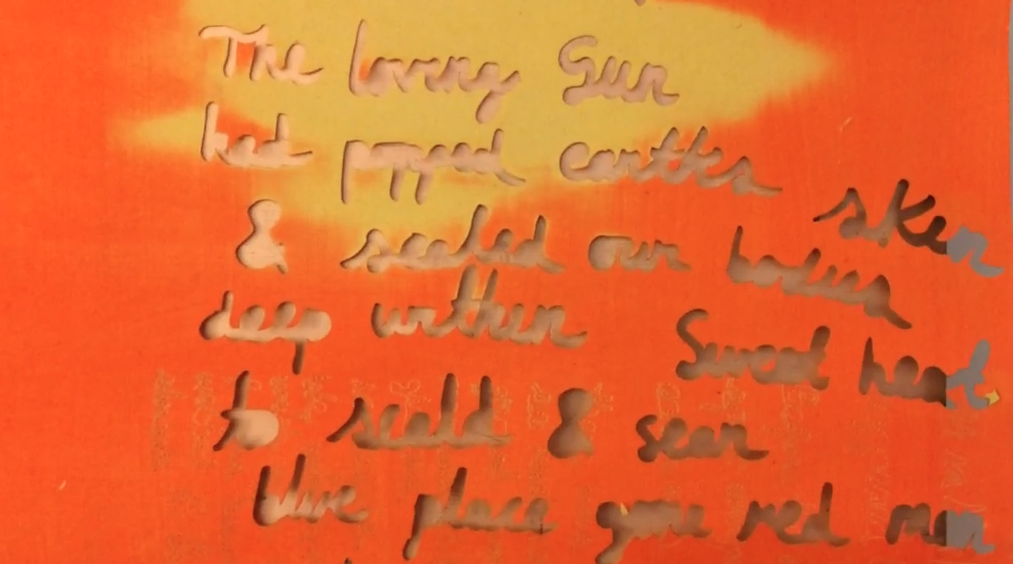 The loving Sun
had popped earths sken
& sealed our bodies
deep within Sweet heat
to scald & sear
blue place gone red man